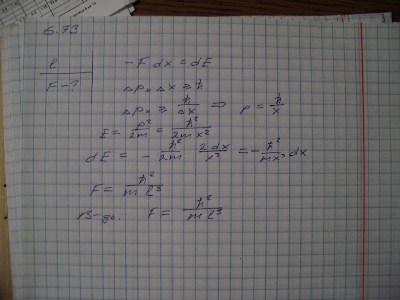 6.73
l
F-?
-F dx = dE
Δpₓ Δx ≥ ħ
Δpₓ ≥ ħ/Δx ⇒ p = ħ/x
E = p²/2m = ħ²/2mx²
dE = - ħ²/2m 2dx/x³ = - ħ²/mx³ dx
F = ħ²/ml³
F = ħ²/ml³